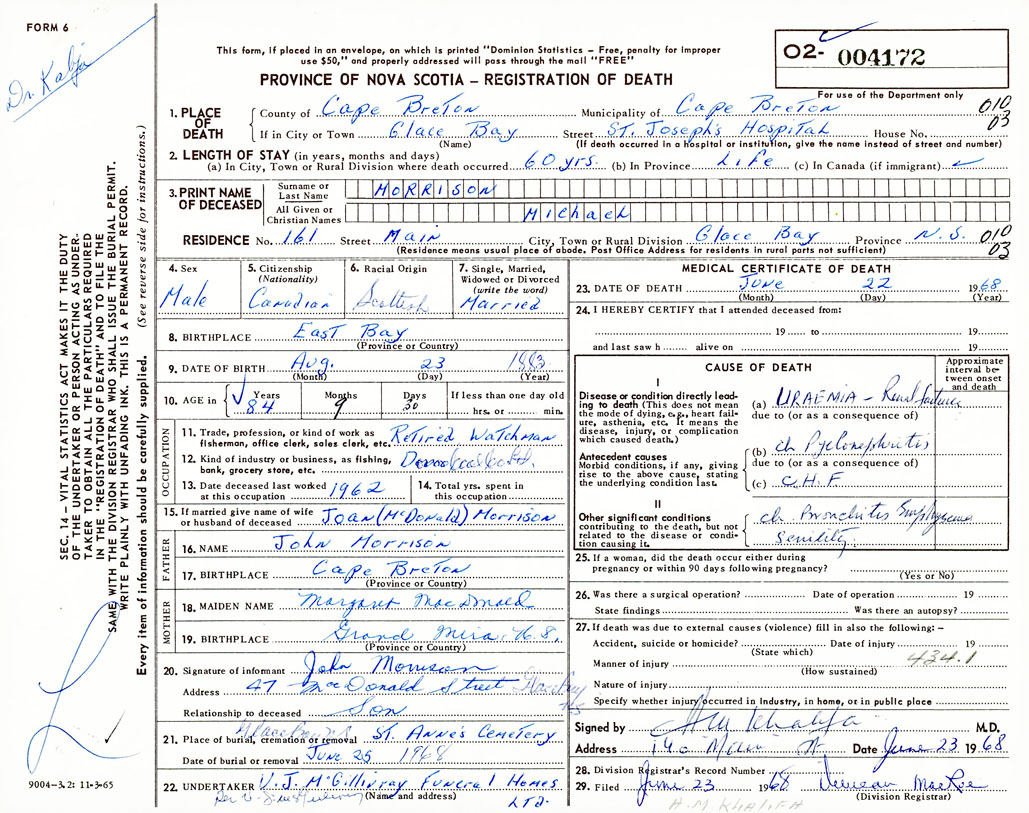 FORM 6
Dr. Kalija
This form, if placed in an envelope, on which is printed "Dominion Statistics – Free, penalty for improper
use $50," and properly addressed will pass through the mail "FREE"
O2- 004172
PROVINCE OF NOVA SCOTIA – REGISTRATION OF DEATH
For use of the Department only
1. PLACE OF DEATH
County of Cape Breton Municipality of Cape Breton 010
If in City or Town Glace Bay Street St. Joseph's Hospital House No. 03
(Name) (If death occurred in a hospital or institution, give the name instead of street and number)
2. LENGTH OF STAY (in years, months and days)
(a) In City, Town or Rural Division where death occurred 60 yrs. (b) In Province Life (c) In Canada (if immigrant)
3. PRINT NAME OF DECEASED
Surname or Last Name MORRISON
All Given or Christian Names Michael
RESIDENCE No. 161 Street Main City, Town or Rural Division Glace Bay Province N.S. 010
03
(Residence means usual place of abode. Post Office Address for residents in rural parts not sufficient)
4. Sex Male
5. Citizenship (Nationality) Canadian
6. Racial Origin Scottish
7. Single, Married, Widowed or Divorced (write the word) Married
8. BIRTHPLACE East Bay
(Province or Country)
9. DATE OF BIRTH Aug. 23 1883
(Month) (Day) (Year)
10. AGE in Years Months Days If less than one day old
84 9 30 hrs. or min.
OCCUPATION
11. Trade, profession, or kind of work as fisherman, office clerk, sales clerk, etc. Retired Watchman
12. Kind of industry or business, as fishing, bank, grocery store, etc.
13. Date deceased last worked at this occupation 1962
14. Total yrs. spent in this occupation
15. If married give name of wife or husband of deceased Joan (McDonald) Morrison
FATHER
16. NAME John Morrison
17. BIRTHPLACE Cape Breton
(Province or Country)
MOTHER
18. MAIDEN NAME Margaret MacDonald
19. BIRTHPLACE Grand Mira N.S.
(Province or Country)
20. Signature of informant John Morrison
Address 47 MacDonald Street
Relationship to deceased Son
21. Place of burial, cremation or removal St. Anne's Cemetery
Date of burial or removal June 25 1968
22. UNDERTAKER V.J. McGillivray Funeral Homes
(Name and address) LTD.
MEDICAL CERTIFICATE OF DEATH
23. DATE OF DEATH June 22 1968
(Month) (Day) (Year)
24. I HEREBY CERTIFY that I attended deceased from:
19 to 19
and last saw h alive on 19
CAUSE OF DEATH
Approximate interval between onset and death
I
Disease or condition directly leading to death (This does not mean the mode of dying, e.g., heart failure, asthenia, etc. It means the disease, injury, or complication which caused death.)
(a) URAEMIA – Renal failure
due to (or as a consequence of)
Antecedent causes
Morbid conditions, if any, giving rise to the above cause, stating the underlying condition last.
(b) ch Pyelonephritis
due to (or as a consequence of)
(c) C.H.F
II
Other significant conditions contributing to the death, but not related to the disease or condition causing it.
ch Bronchitis Emphysema
Senility
25. If a woman, did the death occur either during pregnancy or within 90 days following pregnancy?
(Yes or No)
26. Was there a surgical operation? Date of operation 19
State findings Was there an autopsy?
27. If death was due to external causes (violence) fill in also the following: –
Accident, suicide or homicide? Date of injury 19
(State which) 434.1
Manner of injury
(How sustained)
Nature of injury
Specify whether injury occurred in Industry, in home, or in public place
Signed by Khalifa M.D.
Address 140 Main St Date June 23 1968
28. Division Registrar's Record Number
29. Filed June 23 1968 MacRae
(Division Registrar)
A.M. KHALIFA
SEC. 14 – VITAL STATISTICS ACT MAKES IT THE DUTY
OF THE UNDERTAKER OR PERSON ACTING AS UNDER-
TAKER TO OBTAIN ALL THE PARTICULARS REQUIRED
IN THE "REGISTRATION OF DEATH" AND TO FILE THE
SAME WITH THE DIVISION REGISTRAR WHO SHALL ISSUE THE BURIAL PERMIT.
WRITE PLAINLY WITH UNFADING INK. THIS IS A PERMANENT RECORD.
Every item of information should be carefully supplied. (See reverse side for instructions.)
9004–3.2: 11-3-65